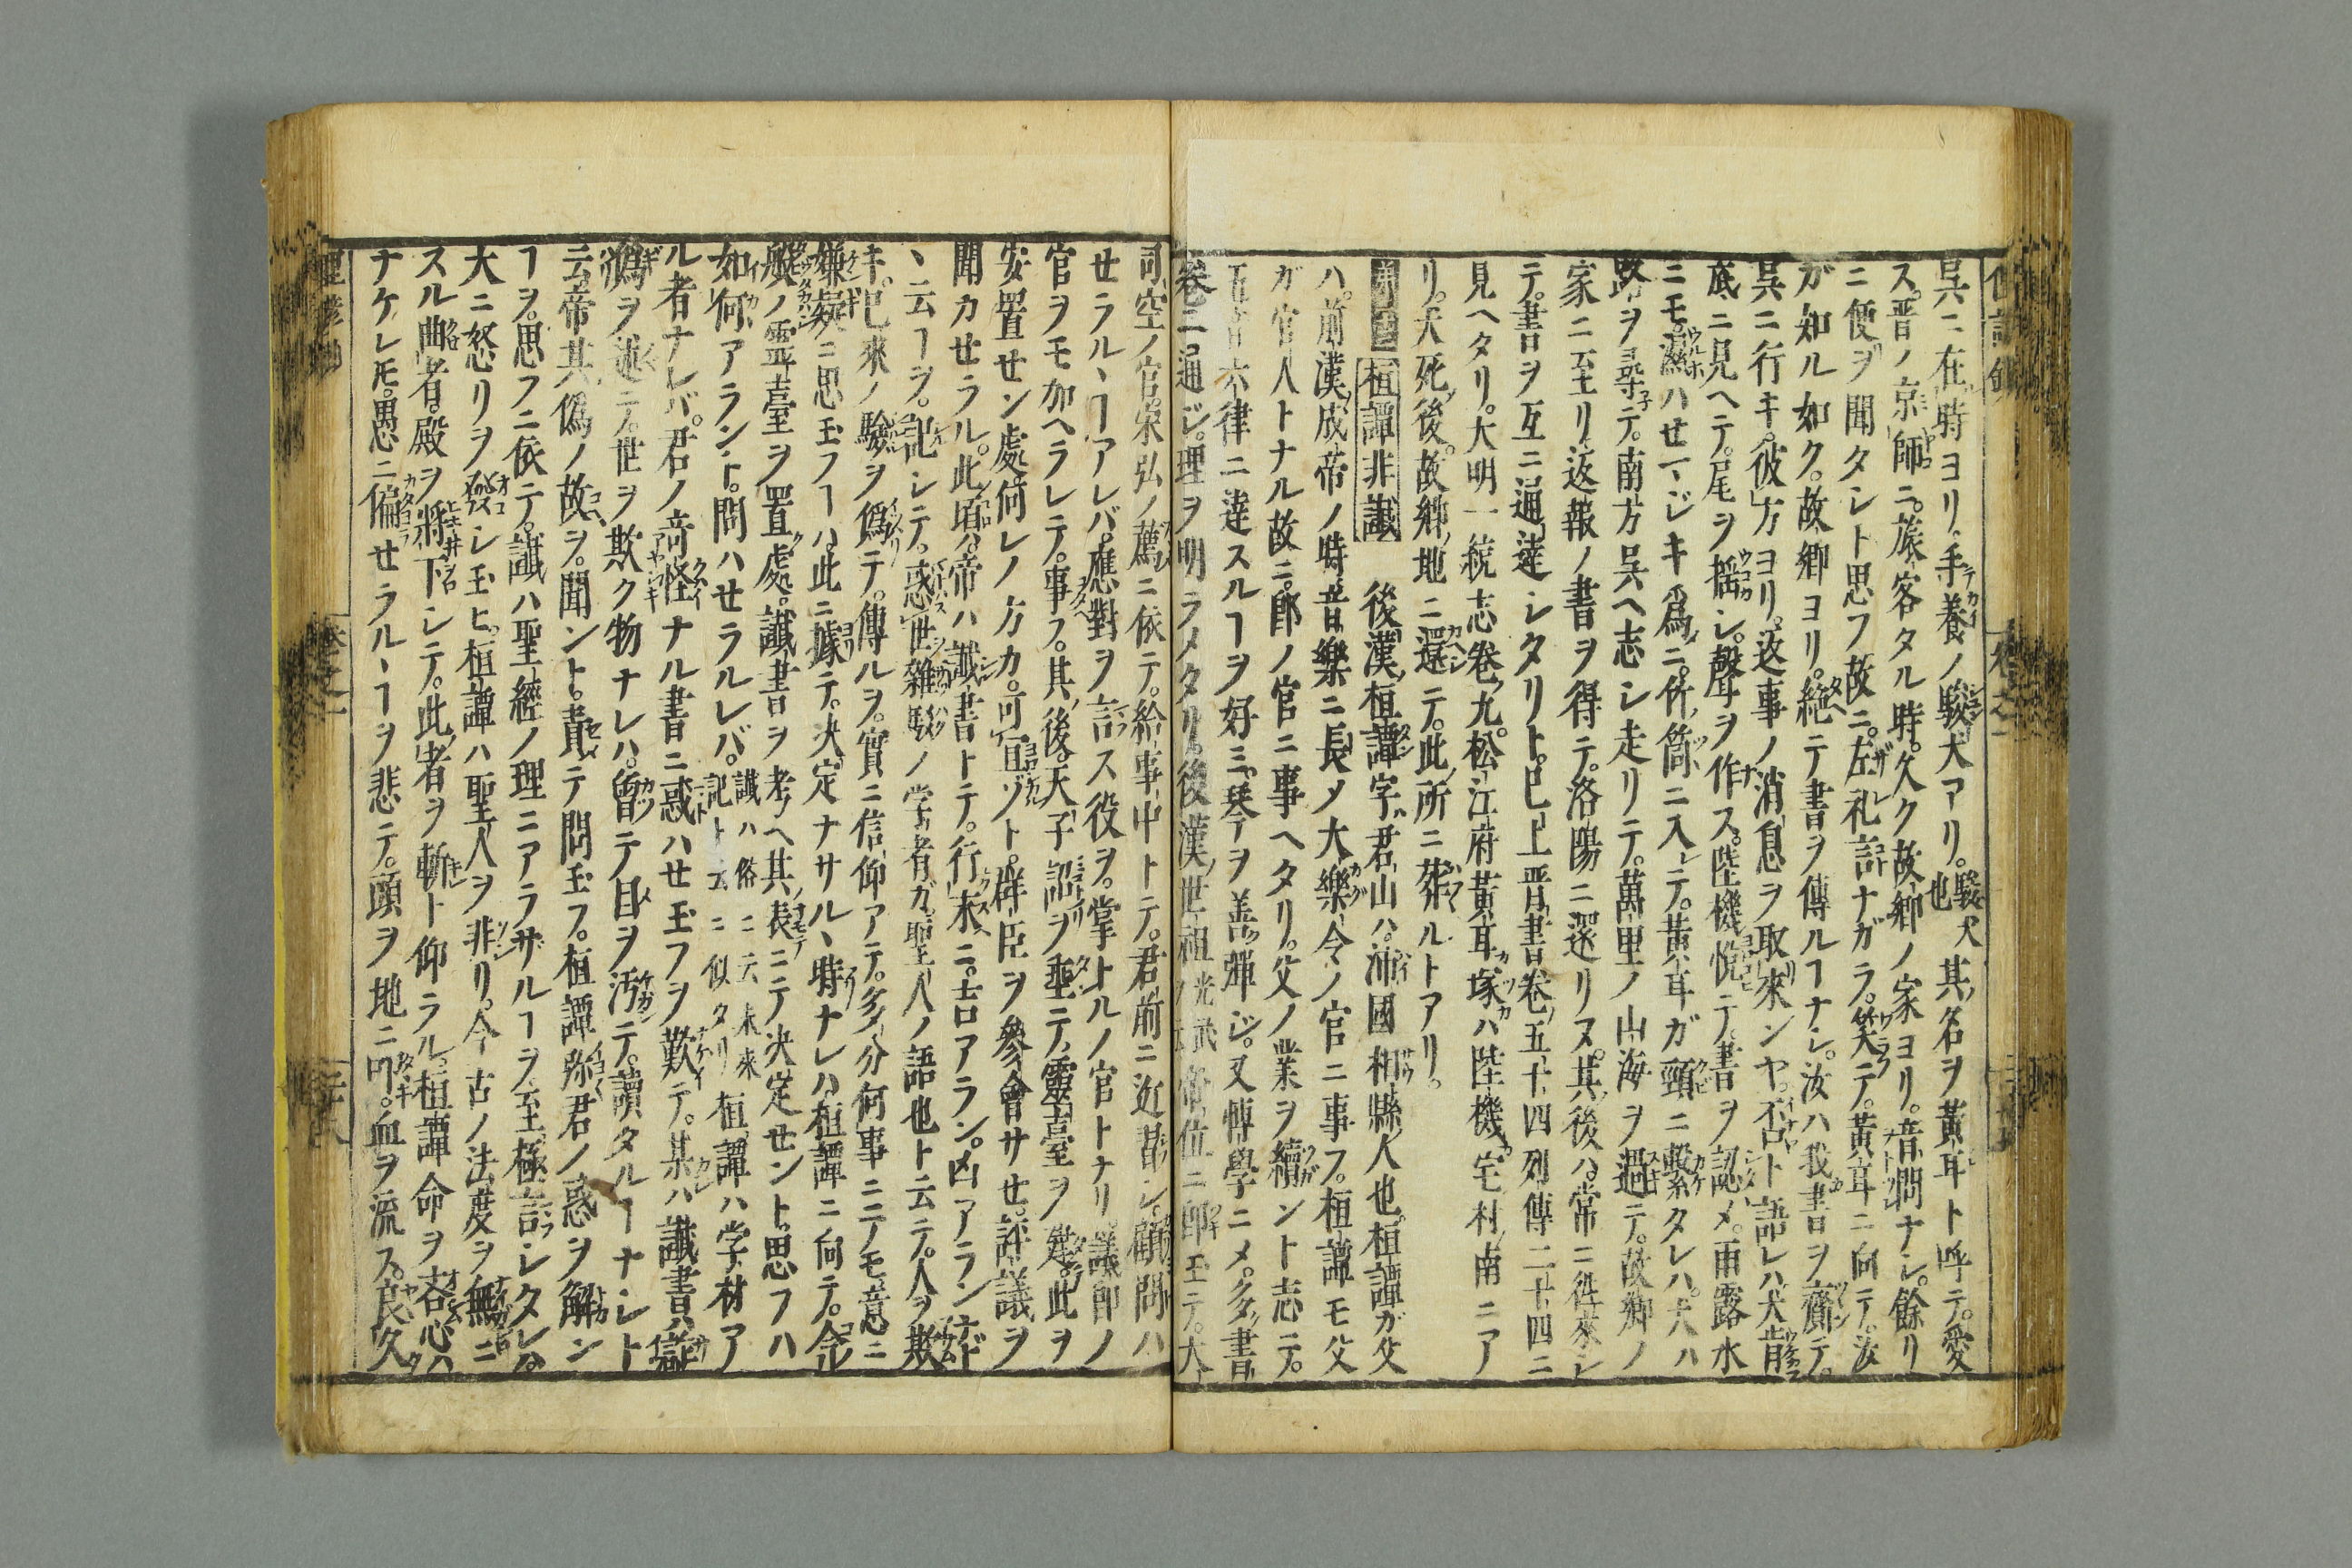 呉ニ在時ヨリ手養ノ駿犬アリ駿犬也其名ヲ黄耳ト呼テ愛
ス晋ノ京師ニ旅客タル時久ク故郷ノ家ヨリ音問ナシ餘リ
ニ便ヲ聞タシト思フ故ニ左礼言ナガラ笑テ黄耳ニ向テ汝
ガ如ル如ク故郷ヨリ絶テ書ヲ傳ルヿナシ汝ハ我書ヲ齎テ
呉ニ行キ彼方ヨリ返事ノ消息ヲ取來ンヤ否ト語レハ犬肯
底ニ見ヘテ尾ヲ揺シ聲ヲ作ス陸機悦テ書ヲ認メ雨露水
ニモ濕ハセマジキ爲ニ竹筒ニ入テ黄耳ガ頸ニ繋タレハ犬ハ
路ヲ尋テ南方呉ヘ志シ走リテ萬里ノ山海ヲ過テ故郷ノ
家ニ至リ返報ノ書ヲ得テ洛陽ニ還リヌ其後ハ常ニ徃來シ
テ書ヲ互ニ通達シタリト已上晋書卷五十四列傳二十四ニ
見ヘタリ大明一統志卷九松江府黄耳塚ハ陸機宅村南ニア
リ犬死後故郷地ニ還テ此所ニ葬ルトアリ
桓譚非讖 後漢桓譚字君山ハ沛國相縣人也桓譚ガ父
ハ前漢成帝ノ時音樂ニ長メ大樂令ノ官ニ事フ桓譚モ父
ガ官人トナル故ニ郎ノ官ニ事ヘタリ父ノ業ヲ續ント志テ
五音六律ニ達スルヿヲ好ミ琴ヲ善彈ジ又博學ニメ多書
卷ニ通ジ理ヲ明ラメタリ後漢世祖光武帝位ニ即玉テ大
司空ノ官宋弘ノ薦ニ依テ給事中トテ君前ニ近昔シ顧問ハ
せラルヽヿアレバ應對ヲ言ス役ヲ掌トルノ官トナリ議郎ノ
官ヲモ加ヘラレテ事フ其後天子詔ヲ垂テ靈臺ヲ建此ヲ
安置せン處何レノ方カ可宜ゾト群臣ヲ參會サせ評議ヲ
聞カせラル此頃ハ帝ハ讖書トテ行末ニ吉アラン凶アランナド
ヽ云ヿヲ記シテ惑世雜駁ノ学者ガ聖人ノ語也ト云テ人ヲ欺
キ已來ノ驗ヲ僞テ傳ルヲ實ニ信仰アテ多分何事ニニノモ意ニ
嫌疑ニ思玉フヿハ此ニ據テ决定ナサルヽ時ナレハ桓譚ニ向テ今
般ノ霊臺ヲ置處讖書ヲ考ヘ其表ニテ决定せント思フハ
如何アラント問ハせラルレバ讖ハ俗ニ云未來記ト云ニ似タリ桓譚ハ学材ア
ル者ナレバ君ノ奇怪ナル書ニ惑ハせ玉フヲ歎テ某ハ讖書ハ
僞ヲ述テ世ヲ欺ク物ナレハ曾テ目ヲ汚テ讀タルヿナシト
云帝其僞ノ故ヲ聞ント責テ問玉フ桓譚弥君ノ惑ヲ解ン
ヿヲ思フニ依テ讖ハ聖經ノ理ニアラサルヿヲ至極言シタレハ
大ニ怒リヲ發シ玉ヒ桓譚ハ聖人ヲ非リ今古ノ法度ヲ無ニ
スル曲者殿ヲ將下シテ此者ヲ斬ト仰ラル桓譚命ヲ吝心ハ
ナケレ𪜈愚ニ偏せラルヽヿヲ悲テ頭ヲ地ニ叩血ヲ流ス良久